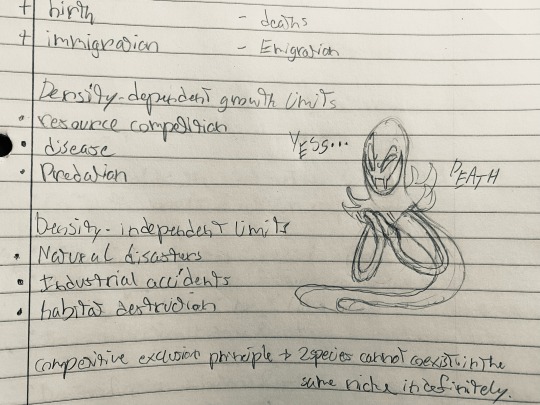 + birth - deaths
+ immigration - Emigration
Density-dependent growth limits
• resource competition
• disease
• Predation
YESS...
DEATH
Density-independent limits
• Natural disasters
• Industrial accidents
• habitat destruction
competitive exclusion principle → 2 species cannot coexist in the
same niche indefinitely.